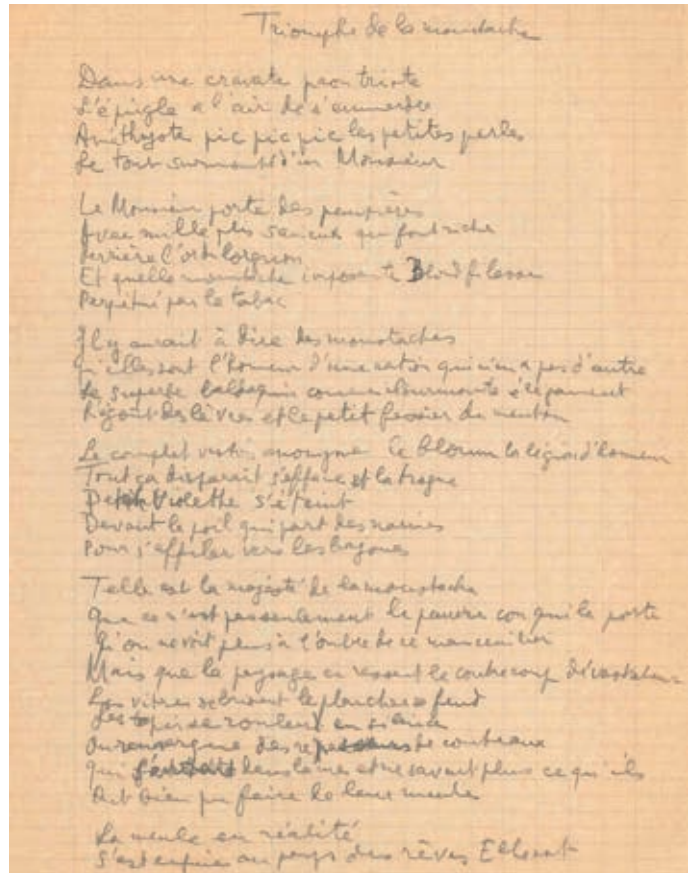 Triomphe de la moustache
Dans une cravate paon triste
L'épingle a l'air de s'emmerder
Améthystes pic pic pic les petites perles
Le tout surmonté d'un Monsieur
Le Monsieur porte des paupières
Avec mille plis qui font riche
Derrière l'orbilorgnon
Et quelle moustache imposante Blond filasse
Perpétué par le tabac
Il y aurait à dire des moustaches
qu'elles sont l'honneur d'une nation qui n'en a pas d'autre
Le superbe baldaquin comme
des lèvres et le petit fessier du menton
Le complet veston anonyme la légion d'honneur
Tout ça disparaît s'efface et la
Violette s'éteint
Devant le poil qui part des narines
Pour s'effiler vers les
Telle est la majesté de la moustache
Que ce n'est pas seulement le pauvre con qui la porte
Qu'on ne voit plus à l'ombre de ce mancenillier
Mais que le paysage en ressent le contrecoup dévastateur
Les vitres se brisent le plancher se fend
Les tapis se roulent en silence
On renvergue des de couteaux
qui dans la mer et ne savent plus ce qu'ils
Ont bien pu faire de leur meule
La meule en réalité
S'est enfuie au pays des rêves Elle